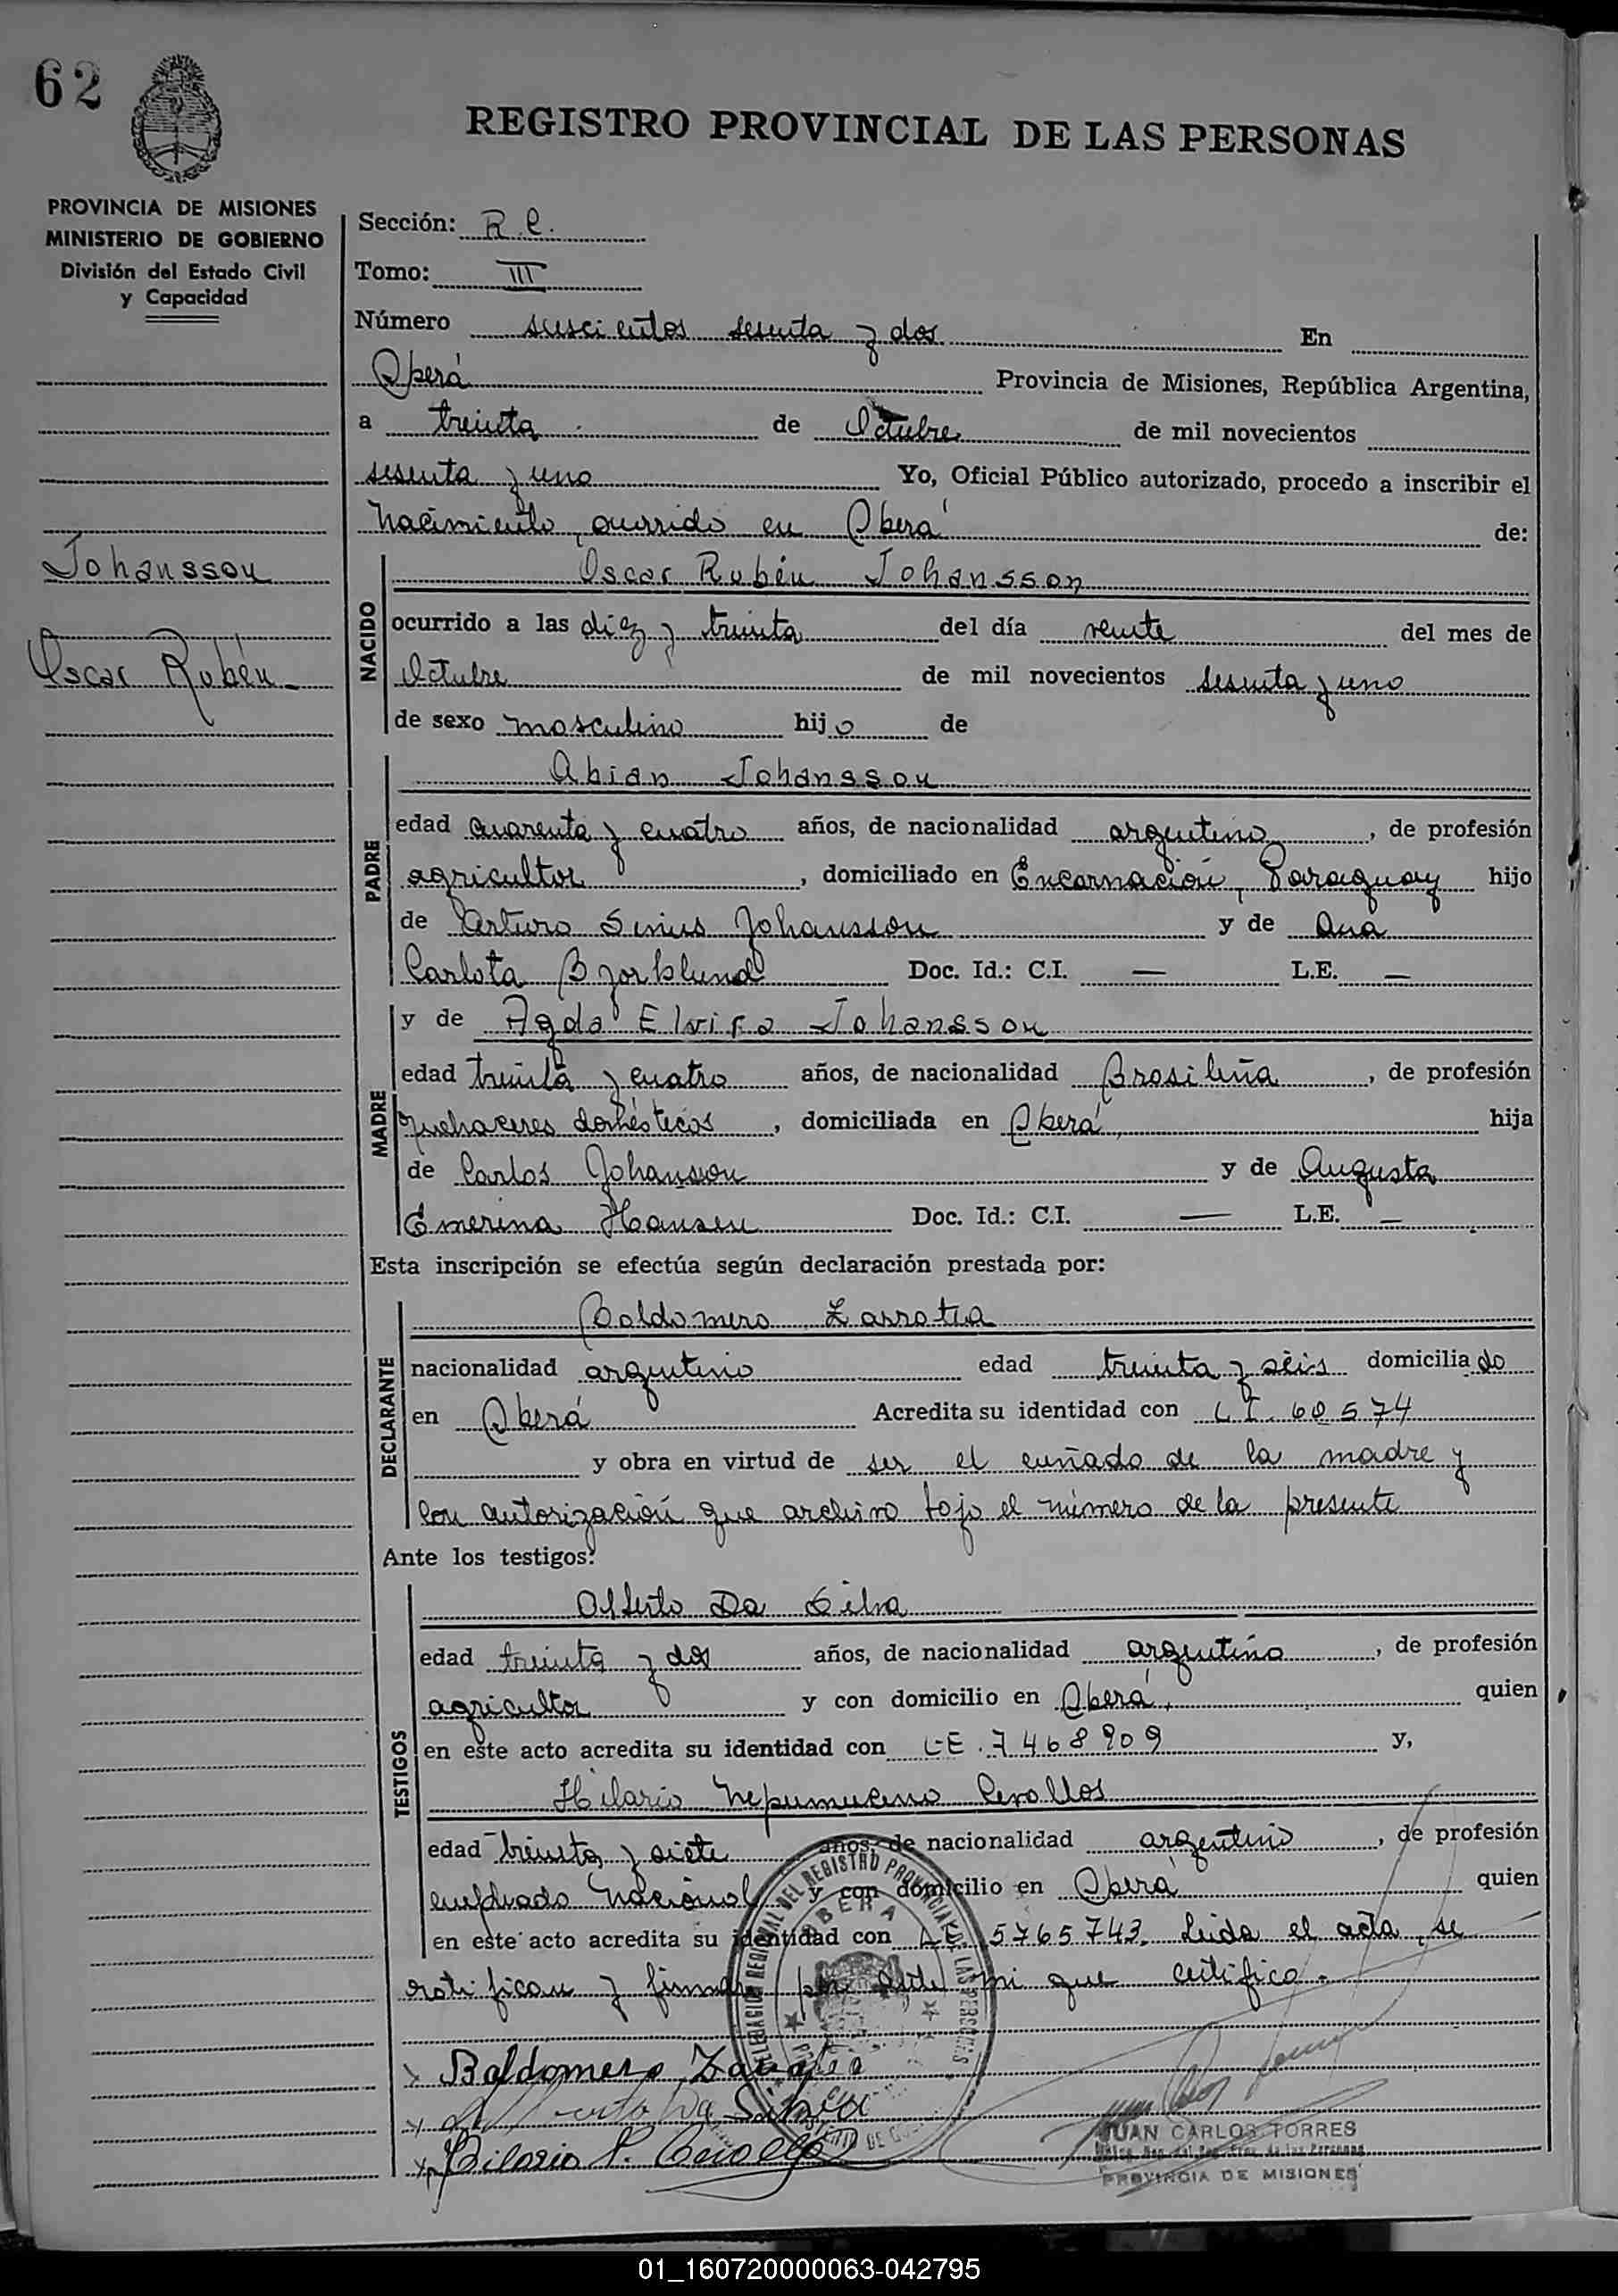 62
REGISTRO PROVINCIAL DE LAS PERSONAS
PROVINCIA DE MISIONES
MINISTERIO DE GOBIERNO
División del Estado Civil
y Capacidad
Sección: R.C.
Tomo: III
Número seiscientos sesenta y dos En
Oberá Provincia de Misiones, República Argentina,
a treinta de Octubre de mil novecientos
sesenta y uno Yo, Oficial Público autorizado, procedo a inscribir el
Nacimiento, ocurrido en Oberá de:
Johansson
Oscar Rubén
NACIDO
Oscar Rubén Johansson
ocurrido a las diez y treinta del día veinte del mes de
Octubre de mil novecientos sesenta y uno
de sexo masculino hijo de
PADRE
Abian Johansson
edad cuarenta y cuatro años, de nacionalidad argentino, de profesión
agricultor, domiciliado en Encarnación, Paraguay hijo
de Arturo Sinius Johansson y de Ana
Carlota Bjorklund Doc. Id.: C.I. — L.E. —
MADRE
y de Agda Elvira Johansson
edad treinta y cuatro años, de nacionalidad Brasileña, de profesión
quehaceres domésticos, domiciliada en Oberá, hija
de Carlos Johansson y de Augusta
Emerina Hansen Doc. Id.: C.I. — L.E. —
Esta inscripción se efectúa según declaración prestada por:
DECLARANTE
Baldomero Zarratea
nacionalidad argentino edad treinta y seis domiciliado
en Oberá Acredita su identidad con C.I. 60574
y obra en virtud de ser el cuñado de la madre y
con autorización que archivo bajo el número de la presente
Ante los testigos:
TESTIGOS
Alberto Da Silva
edad treinta y dos años, de nacionalidad argentino, de profesión
agricultor y con domicilio en Oberá, quien
en este acto acredita su identidad con L.E. 7468909 y,
Hilario Nepumuceno Cevallos
edad treinta y siete años, de nacionalidad argentino, de profesión
empleado Nacional y con domicilio en Oberá quien
en este acto acredita su identidad con L.E. 5765743. Leida el acta, se
ratifican y firman por ante mi que certifico.
Baldomero Zarratea
Alberto Da Silva
Hilario N. Cevallos
OBERA
JUAN CARLOS TORRES
PROVINCIA DE MISIONES
01_160720000063-042795